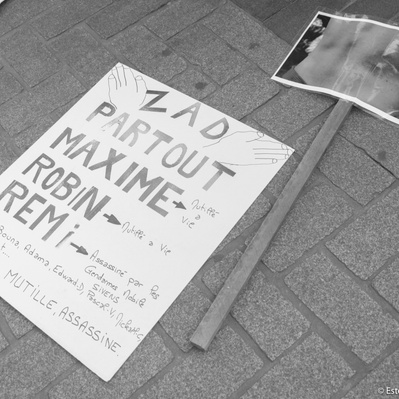 ZAD
PARTOUT
MAXIME → Mutilé à vie
ROBIN → Mutilé à vie
REMI → Assassiné par les
Gendarmes Mobile
SIVENS
Bouna, Adama, Edward.D, Pascal.V,
MUTILLE, ASSASSINE.
© Este